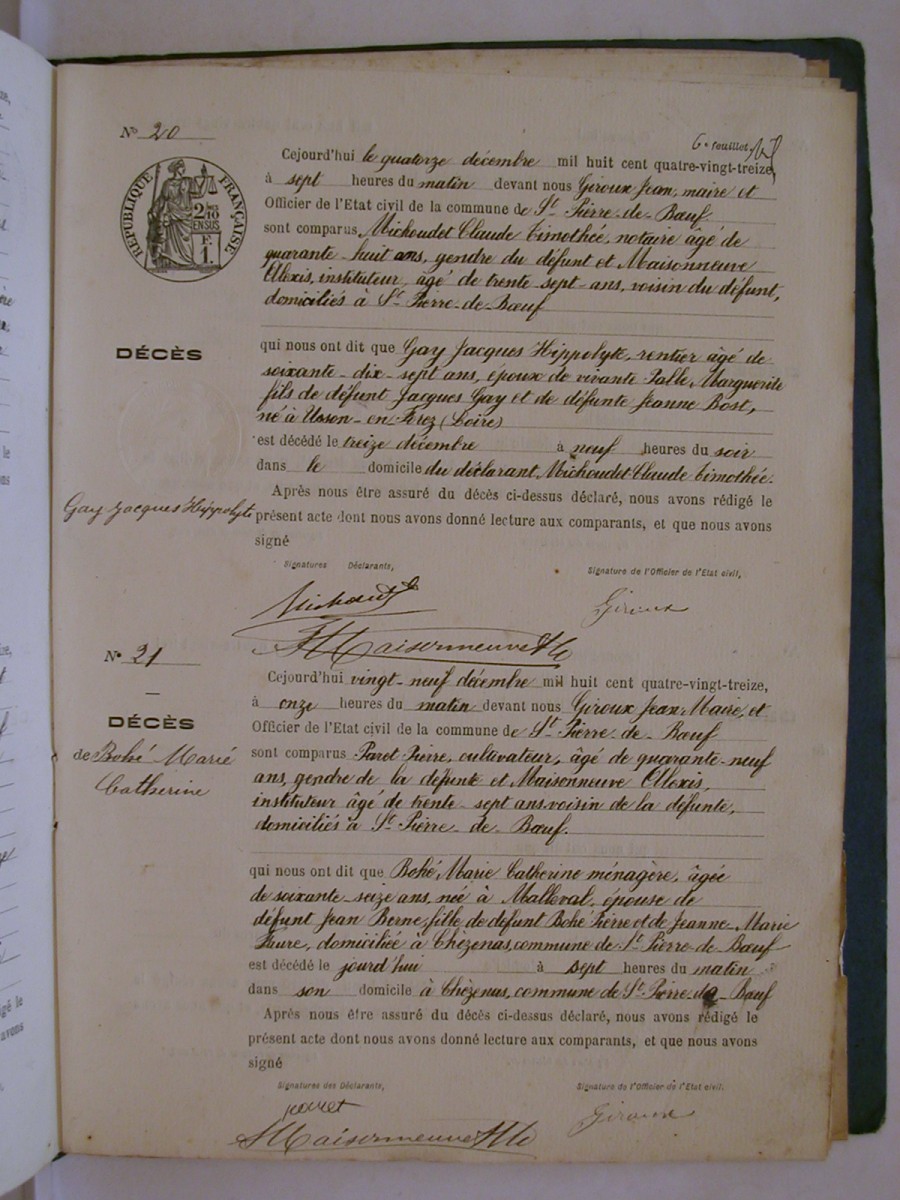 6e feuillet
N° 20
RÉPUBLIQUE FRANÇAISE
2/10 EN SUS
F. 1.
Cejourd'hui le quatorze décembre mil huit cent quatre-vingt-treize,
à sept heures du matin devant nous Giroux Jean, maire et
Officier de l'Etat civil de la commune de St Pierre-de-Bœuf
sont comparus Michoudet Claude Timothée, notaire âgé de
quarante-huit ans, gendre du défunt et Maisonneuve
Alexis, instituteur, âgé de trente-sept-ans, voisin du défunt,
domiciliés à St Pierre-de-Bœuf
DÉCÈS
qui nous ont dit que Gay Jacques Hippolyte, rentier âgé de
soixante-dix-sept ans, époux de vivante Palle Marguerite
fils de défunt Jacques Gay et de défunte Jeanne Bost,
né à Usson-en-Forez (Loire)
est décédé le treize décembre à neuf heures du soir
dans le domicile du déclarant Michoudet Claude Timothée.
Gay Jacques Hippolyte
Après nous être assuré du décès ci-dessus déclaré, nous avons rédigé le
présent acte dont nous avons donné lecture aux comparants, et que nous avons
signé
Signatures Déclarants,
Signature de l'Officier de l'Etat civil,
Michoudet
Giroux
A Maisonneuve
N° 21
Cejourd'hui vingt-neuf décembre mil huit cent quatre-vingt-treize,
à onze heures du matin devant nous Giroux Jean Maire, et
DÉCÈS
de Bohé Marie
Catherine
Officier de l'Etat civil de la commune de St Pierre-de-Bœuf
sont comparus Paret Pierre, cultivateur, âgé de quarante-neuf
ans, gendre de la défunte et Maisonneuve Alexis,
instituteur âgé de trente-sept ans voisin de la défunte,
domiciliés à St Pierre-de-Bœuf.
qui nous ont dit que Bohé Marie Catherine ménagère, âgée
de soixante-seize ans, née à Malleval, épouse de
défunt Jean Berne, fille de défunt Bohé Pierre et de Jeanne-Marie
domiciliée à Chézenas, commune de St Pierre-de-Bœuf
est décédé le jourd'hui à sept heures du matin
dans son domicile à Chézenas, commune de St Pierre-de-Bœuf
Après nous être assuré du décès ci-dessus déclaré, nous avons rédigé le
présent acte dont nous avons donné lecture aux comparants, et que nous avons
signé
Signatures des Déclarants,
Signature de l'Officier de l'Etat civil.
paret
Giroux
A Maisonneuve